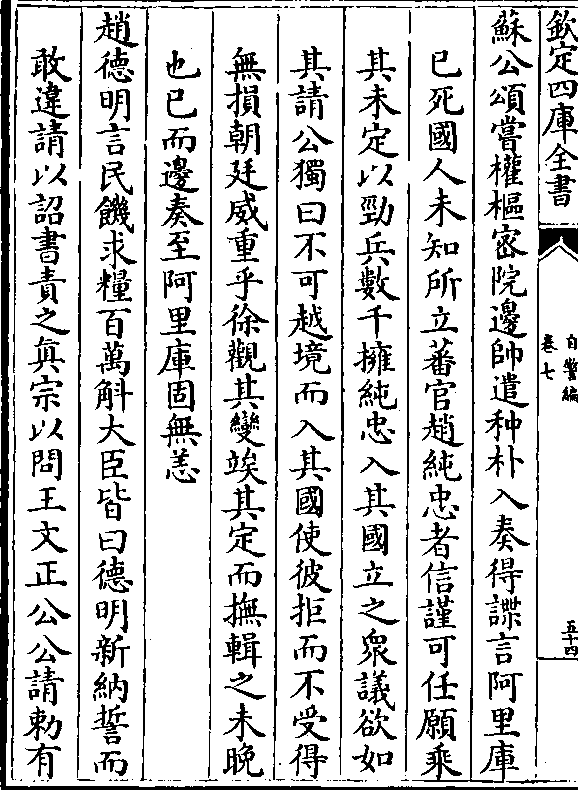 欽定四庫全書
自警編
卷七
五十四
蘇公頌嘗權樞密院邊帥遣种朴入奏得諜言阿里庫
已死國人未知所立蕃官趙純忠者信謹可任願乘
其未定以勁兵數千擁純忠入其國立之衆議欲如
其請公獨曰不可越境而入其國使彼拒而不受得
無損朝廷威重乎徐觀其變竢其定而撫輯之未晚
也已而邊奏至阿里庫固無恙
趙德明言民饑求糧百萬斛大臣皆曰德明新納誓而
敢違請以詔書責之真宗以問王文正公公請勅有